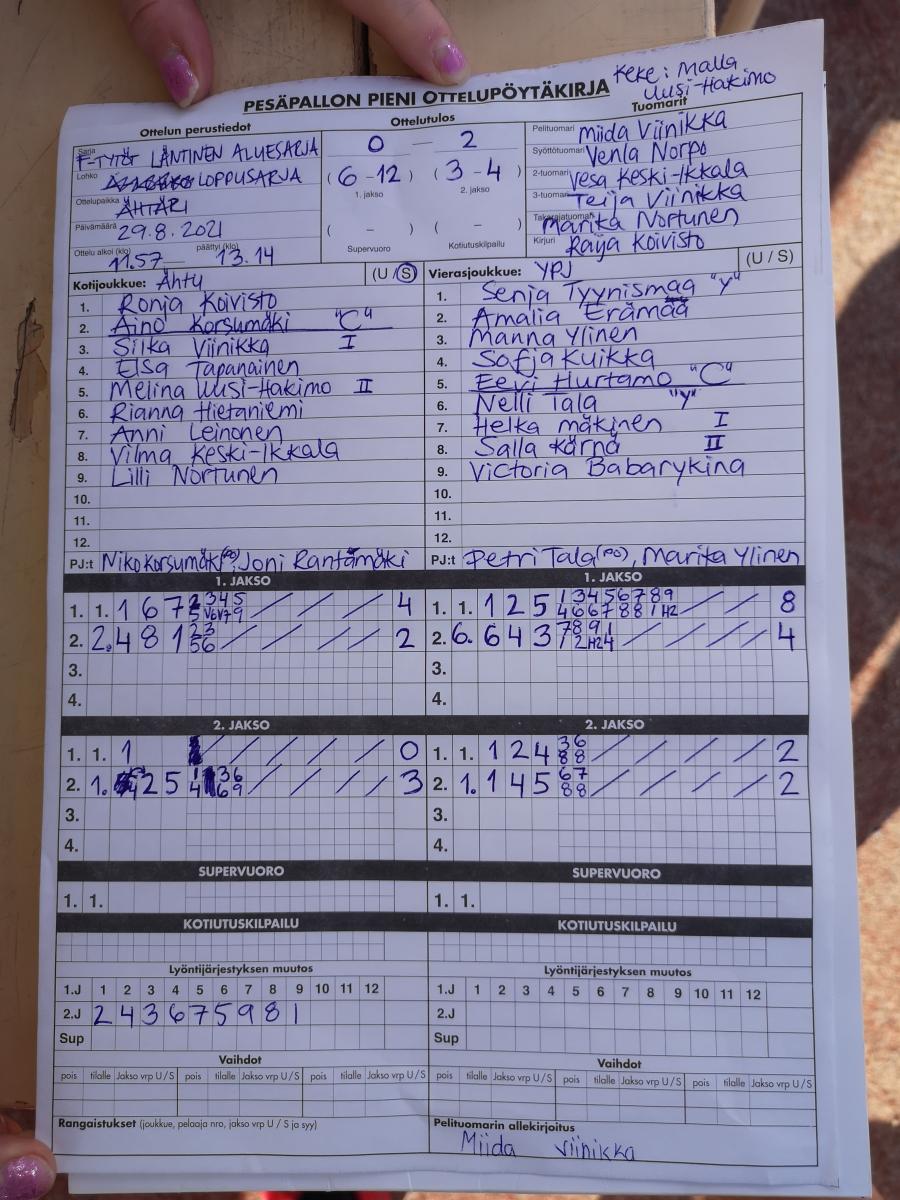 Keke: Malla
Uusi-Hakimo
PESÄPALLON PIENI OTTELUPÖYTÄKIRJA
Ottelun perustiedot
Ottelutulos
Tuomarit
Sarja F-TYTÖT LÄNTINEN ALUESARJA
Lohko LOPPUSARJA
Ottelupaikka ÄHTÄRI
Päivämäärä 29.8.2021
Ottelu alkoi (klo) 11.57 päättyi (klo) 13.14
0 — 2
(6-12) (3-4)
1. jakso 2. jakso
( - ) ( - )
Supervuoro Kotiutuskilpailu
Pelituomari Miida Viinikka
Syöttötuomari Venla Norpo
2-tuomari Vesa Keski-Ikkala
3-tuomari Teija Viinikka
Takarajatuomari Marika Nortunen
Kirjuri Raija Koivisto
Kotijoukkue: Ähty (U/S)
1. Ronja Koivisto
2. Aino Korsumäki "C"
3. Silka Viinikka I
4. Elsa Tapanainen
5. Melina Uusi-Hakimo II
6. Rianna Hietaniemi
7. Anni Leinonen
8. Vilma Keski-Ikkala
9. Lilli Nortunen
10.
11.
12.
PJ:t Niko Korsumäki (PO), Joni Rantamäki
Vierasjoukkue: YPJ (U/S)
1. Senja Tyynismaa "Y"
2. Amalia Erämaa
3. Manna Ylinen
4. Sofja Kuikka
5. Eevi Hurtamo "C"
6. Nelli Tala "Y"
7. Helka mäkinen I
8. Salla Kärnä II
9. Victoria Babarykina
10.
11.
12.
PJ:t Petri Tala (PO), Marita Ylinen
1. JAKSO
1. 1. 1 6 7 4
2. 2. 4 8 1 2
3.
4.
1. JAKSO
1. 1. 1 2 5 8
2. 6. 6 4 3 4
3.
4.
2. JAKSO
1. 1. 1 0
2. 1. 2 5 3
3.
4.
2. JAKSO
1. 1. 1 2 4 2
2. 1. 1 4 5 2
3.
4.
SUPERVUORO
1. 1.
SUPERVUORO
1. 1.
KOTIUTUSKILPAILU
KOTIUTUSKILPAILU
Lyöntijärjestyksen muutos
1.J 1 2 3 4 5 6 7 8 9 10 11 12
2.J 2 4 3 6 7 5 9 8 1
Sup
Lyöntijärjestyksen muutos
1.J 1 2 3 4 5 6 7 8 9 10 11 12
2.J
Sup
Vaihdot
pois tilalle Jakso vrp U/S pois tilalle Jakso vrp U/S pois tilalle Jakso vrp U/S
Vaihdot
pois tilalle Jakso vrp U/S pois tilalle Jakso vrp U/S pois tilalle Jakso vrp U/S
Rangaistukset (joukkue, pelaaja nro, jakso vrp U/S ja syy)
Pelituomarin allekirjoitus
Miida Viinikka